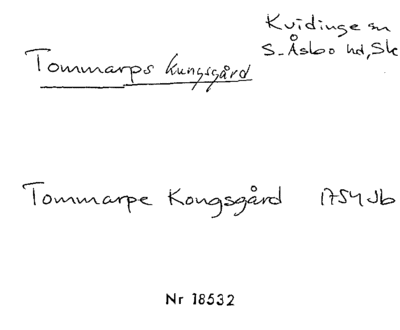 Kvidinge sn
S. Åsbo hd, Sk
Tommarps kungsgård
Tommarpe Kongsgård 1754 Jb
Nr 18532